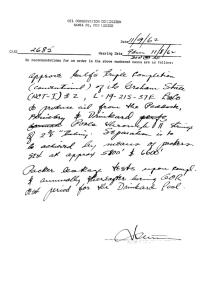 OIL CONSERVATION COMMISSION
SANTA FE, NEW MEXICO
Date 11/9/62
CASE 2685 Hearing Date 9am 11/8/62
My recommendations for an order in the above numbered cases are as follows:
Approve Gulf's Triple Completion
(conventional) of its Graham State
(NCT-I) # 2 L-19-21S-37E
to produce oil from the Paddock,
Blinebry & Drinkard
Pools through strings
of 2 3/8" tubing. Separation is to
be achieved by means of packers
set at approx &
Packer leakage tests upon compl.
& annually thereafter during GOR
test period for the Drinkard Pool.